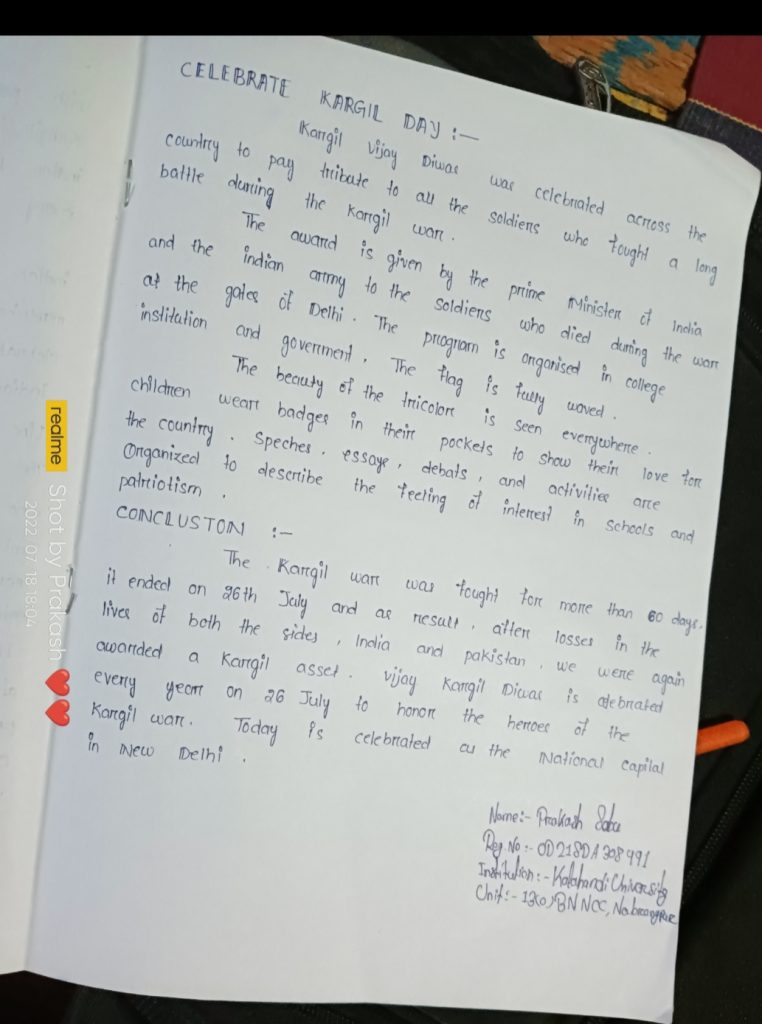 CELEBRATE KARGIL DAY :-
Kargil Vijay Diwas was celebrated across the
country to pay tribute to all the soldiers who fought a long
battle during the Kargil war.
The award is given by the prime Minister of India
and the indian army to the soldiers who died during the war
at the gates of Delhi. The program is organised in college
institution and goverment. The flag is fully waved.
The beauty of the tricolor is seen everywhere.
children wear badges in their pockets to show their love for
the country. Speches, essays, debats, and activities are
Organized to describe the feeling of interest in schools and
patriotism.
CONCLUSTON :-
The Kargil war was fought for more than 60 days.
it ended on 26th July and as result, after losses in the
lives of both the sides, India and pakistan, we were again
awarded a Kargil asset. Vijay Kargil Diwas is celebrated
every year on 26 July to honor the heroes of the
Kargil war. Today is celebrated as the National capital
in New Delhi.
Name:- Prakash
Reg. No:- OD21SDA308991
Institution:- Kalahandi University
Unit:- BN NCC, Nabrangpur
realme Shot by Prakash
2022.07.18 18:04